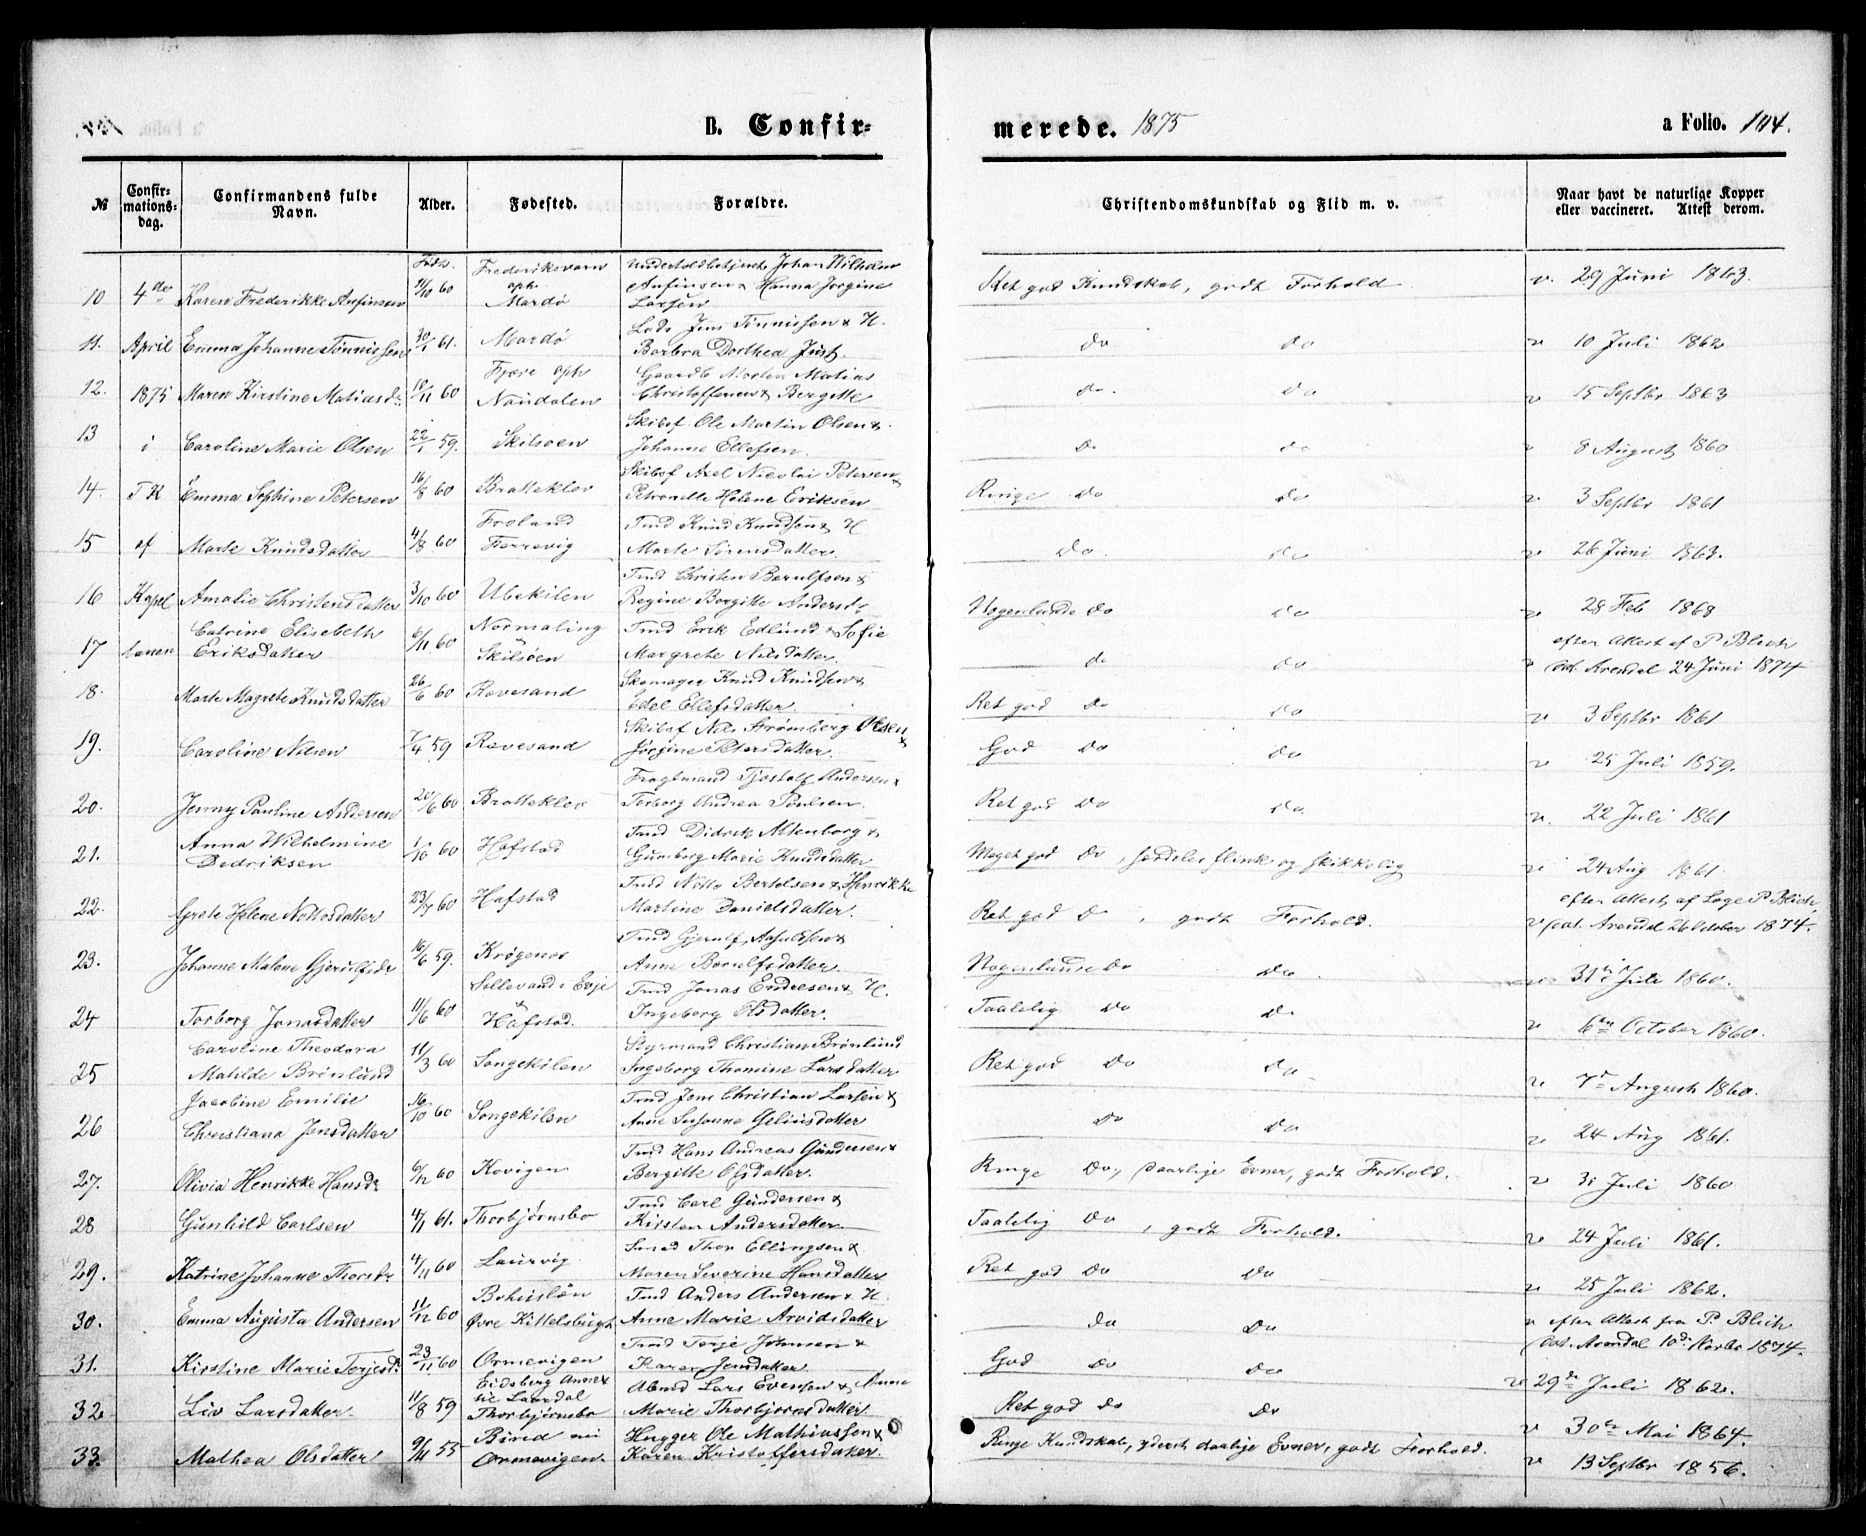 B. Confir=
merede. 1875
a Folio. 104.
№
Confir=
mations=
dag.
Confirmandens fulde
Navn.
Alder.
Fødested.
Forældre.
Christendomskundskab og Flid m. v.
Naar havt de naturlige Kopper
eller vaccineret. Attest derom.
10 4de Karen Frederikke Anfinsen Føds. 21/10 60 Frederiksværn oph. Mardø Undertoldbetjent Johan Wilhelm Anfinsen & Hanna Jørgine Larsen Ret god Kundskab, godt Forhold v. 29 Juni 1863.
11. April Emma Johanne Tønnissen 30/1 61. Mardø Lods Jens Tønnissen & H. Barbra Dorthea Just. do do v 10 Juli 1862
12. 1875 Maren Kirstine Matiasdr. 18/11 60 Fjære oph Naudalen Gaardb Morten Matias Christoffersen & Bergitte do. do v 15 Septbr 1863
13 i Caroline Marie Olsen 22/1 59. Skilsøen Skibsf. Ole Martin Olsen & Johanne Ellefsen. do do v 8 August 1860
14. T K Emma Sophine Petersen 16/8 60 Bratteklev Skibsf Axel Nicolai Petersen & Petronelle Helene Eriksen Ringe do do v 3 Septbr 1861
15 af Marte Knudsdatter 4/8 60 Froland Færevig Tmd Knud Knudsen & H Marte Sørensdatter. do. do v 26 Juni 1863.
16 Kapel Amalie Christensdatter 3/10 60 Ubekilen Tmd Christen Berulfsen & Regine Bergitte Andersd. Nogenlunde do do v 28 Feb 1868
17 lanen Catrine Elisebeth Eriksdatter 6/11 60 Normaling Skilsøen Tmd Erik Edlund & Sofie Margrete Nilsdatter. do do efter Attest af P Blich v dat. Arendal 24 Juni 1874
18. Marte Magrete Knudsdatter 26/6 60 Revesand Skomager Knud Knudsen & Edel Ellefsdatter. Ret god do do v 3 Septbr 1861
19. Caroline Nilsen 7/4 59 Revesand Skibsf Nils Strømberg Olsen & Jørgine Petersdatter. God do do v 25 Juli 1859.
20. Jenny Pauline Andersen 20/6 60 Bratteklev Fragtmand Tjøstolf Andersen & Torborg Andrea Poulsen. Ret god do do. v. 22 Juli 1861
21. Anna Wilhelmine Dedriksen 1/10 60 Hafstad Tmd Didrik Altenborg & Gunborg Marie Knudsdatter Meget god do, særdeles flink og skikkelig v 24 Aug 1861.
22. Grete Helene Nottosdatter 23/7 60 Hafstad Tmd Notto Bertelsen & Henrikke Martine Danielsdatter. Ret god do, godt Forhold. efter Attest af Læge P Blich, v dat. Arendal 26 October 1874.
23. Johanne Malene Gjerulfsdr 16/6 59. Krøgenes Tmd Gjerulf Aasuldsen & Anne Berulfsdatter. Nogenlunde do do. v 31te Juli 1860.
24 Torborg Jonasdatter 11/6 60 Sollesand i Evje & Hafstad. Tmd Jonas Endresen & H. Ingeborg Olsdatter. Taalelig do do v 6te October 1860.
25 Caroline Theodora Matilde Brønlund 11/3 60 Songekilen Styrmand Christian Brønlund Ingeborg Thomine Larsdatter Ret god do do v 7de August 1860.
26 Jacobine Emilie Christiana Jensdatter 16/10 60 Songekilen Tmd Jens Christian Larsen & Anne Susanne Geliusdatter do do v 24 Aug 1861.
27. Olivia Henrikke Hansdr 6/12 60 Kovigen Tmd Hans Andreas Gundersen & Bergitte Olsdatter. Ringe do, daarlige Evner, godt Forhold. v 31 Juli 1860
28 Gunhild Carlsen 4/1 61. Thorbjørnsbo Tmd Carl Gundersen & Kirsten Andersdatter. Taalelig do, godt Forhold. v 24 Juli 1861.
29. Katrine Johanne Thorsdr 4/11 60 Laurvig Smed Thor Ellingsen & Maren Severine Hansdatter Ret god do do v 25 Juli 1862.
30. Emma Augusta Andersen 11/12 60 Bohuslän Øvre Kittelsbugt Tmd Anders Andersen & H. Anne Marie Arvidsdatter do do v efter Attest fra P. Blich dat. Arendal 10de Novbr 1874.
31. Kirstine Marie Terjesdr. 23/11 60 Ormevigen Tmd Terje Johnsen & Karen Jensdatter. God do do v 29de Juli 1862.
32 Liv Larsdatter. 11/8 59 Eidsberg Annex til Laardal Thorbjørnsbo Abmd Lars Evensen & Anne Marie Thorbjørnsdatter Ret god do do v 30te Mai 1864.
33. Mathea Olsdatter 9/11 55 Bired nu Ormevigen. Hugger Ole Mathiassen & Karen Kristoffersdatter. Ringe Kundskab, yderst daarlige Evner, godt Forhold. v 13 Septbr 1856.